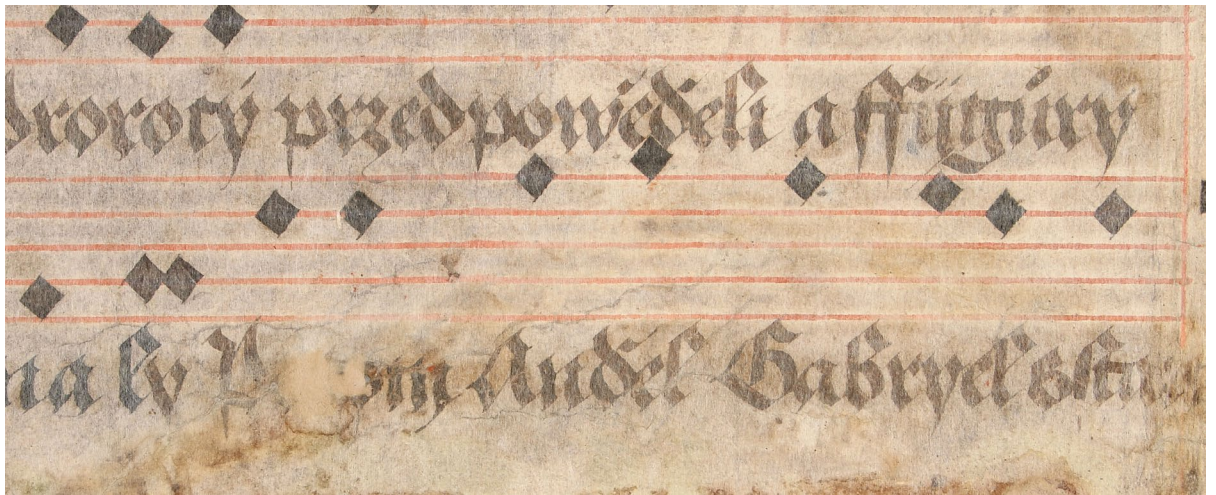 prorotý przedpowěděli a ffiigúry
na ly Anděl Gabryel